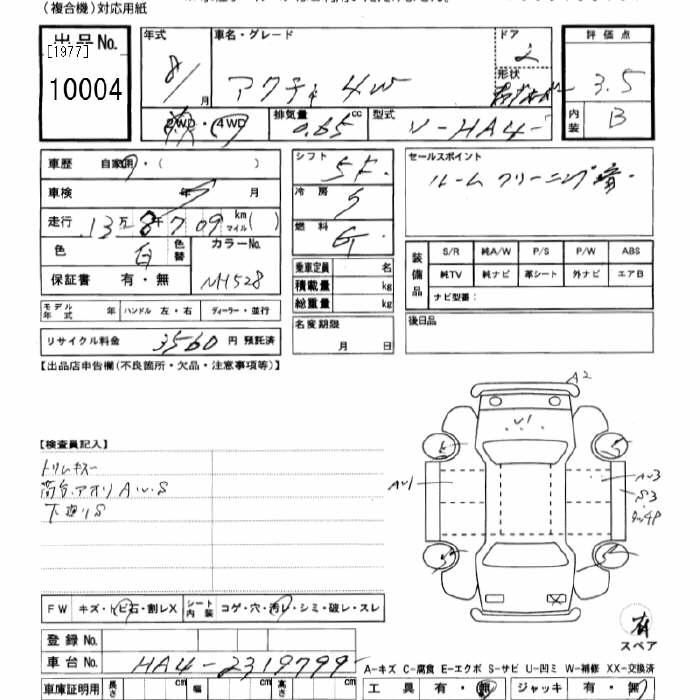 (複合機)対応用紙
出品No.
[1977]
10004
年式 8/ 月
車名・グレード アクティ 4W
ドア 2
形状
評価点 3.5
内装 B
2WD・4WD
排気量 0.65 cc
型式 V-HA4-
車歴 自家用・( )
車検 年 月
走行 13万8千709 km マイル( )
色 白 色替
カラーNo. NH528
保証書 有・無
シフト 5F.
冷房 S
燃料 G
乗車定員 名
積載量 kg
総重量 kg
セールスポイント
ルーム クリーニング 済.
装備品
S/R 純A/W P/S P/W ABS
純TV 純ナビ 革シート 外ナビ エアB
ナビ型番:
モデル年式 年 ハンドル 左・右 ディーラー・並行
リサイクル料金 3560 円 預託済
名変期限 月 日
後日品
【出品店申告欄(不良箇所・欠品・注意事項等)】
【検査員記入】
トリムキズ
荷台.アオリ A.U.S
下廻りS
A2
U1
AU1
AU3
S3
FW キズ・トビ石・割レX
シート内装 コゲ・穴・汚レ・シミ・破レ・スレ
有
スペア
登録No.
車台No. HA4-2319799-
A-キズ C-腐食 E-エクボ S-サビ U-凹ミ W-補修 XX-交換済
車庫証明用 長さ cm 幅 cm 高さ cm
工具 有・無 ジャッキ 有・無